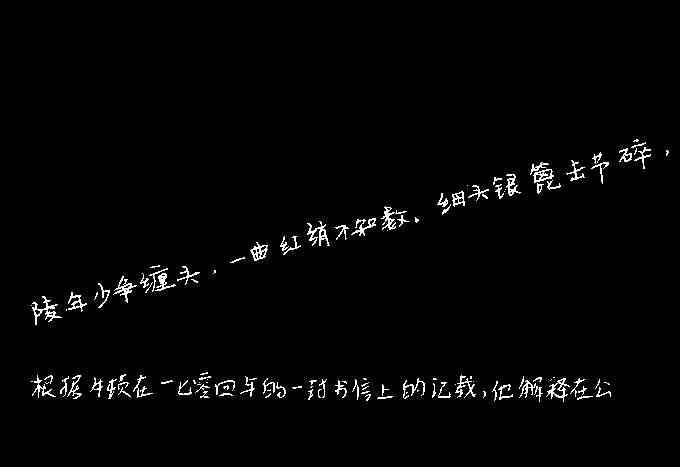 陵年少争缠头,一曲红绡不知数。细头银篦击节碎,
根据牛顿在一七零四年的一封书信上的记载,他解释在公